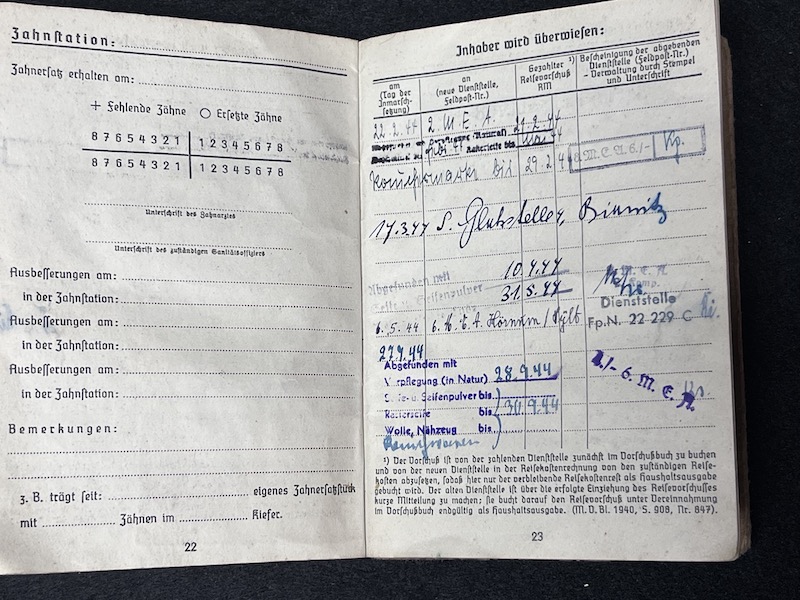 Zahnstation:
Zahnersatz erhalten am:
+ Fehlende Zähne ○ Ersetzte Zähne
8 7 6 5 4 3 2 1 | 1 2 3 4 5 6 7 8
8 7 6 5 4 3 2 1 | 1 2 3 4 5 6 7 8
Unterschrift des Zahnarztes
Unterschrift des zuständigen Sanitätsoffiziers
Ausbesserungen am:
in der Zahnstation:
Ausbesserungen am:
in der Zahnstation:
Ausbesserungen am:
in der Zahnstation:
Bemerkungen:
z. B. trägt seit: eigenes Zahnersatzstück
mit Zähnen im Kiefer.
22
Inhaber wird überwiesen:
am (Tag der Inmarschsetzung)
an (neue Dienststelle, Feldpost-Nr.)
Gezahlter ¹) Reisevorschuß RM
Bescheinigung der abgebenden Dienststelle (Feldpost-Nr.) - Verwaltung durch Stempel und Unterschrift
22.2.44 2. M. E. A.
Rasierseife bis
bis 29.2.44
M.E.A. 6./-
17.3.44
Abgefunden mit 10.4.44
Seifenpulver 31.5.44
Dienststelle
Fp.N. 22 229 C
6.5.44 6. M.E.A. Hörnum / Sylt
27.9.44
Abgefunden mit
Verpflegung (in Natur) 28.9.44
Seife- u. Seifenpulver bis
Rasierseife bis 30.9.44
Wolle, Nähzeug bis
1./- 6. M. E. A.
¹) Der Vorschuß ist von der zahlenden Dienststelle zunächst im Vorschußbuch zu buchen
und von der neuen Dienststelle in der Reisekostenrechnung von den zuständigen Reise-
kosten abzusetzen, sodaß hier nur der verbleibende Reisekostenrest als Haushaltsausgabe
gebucht wird. Der alten Dienststelle ist über die erfolgte Einziehung des Reisevorschusses
kurze Mitteilung zu machen; sie bucht darauf den Reisevorschuß unter Vereinnahmung
im Vorschußbuch endgültig als Haushaltsausgabe. (M. D. Bl. 1940, S. 908, Nr. 847).
23